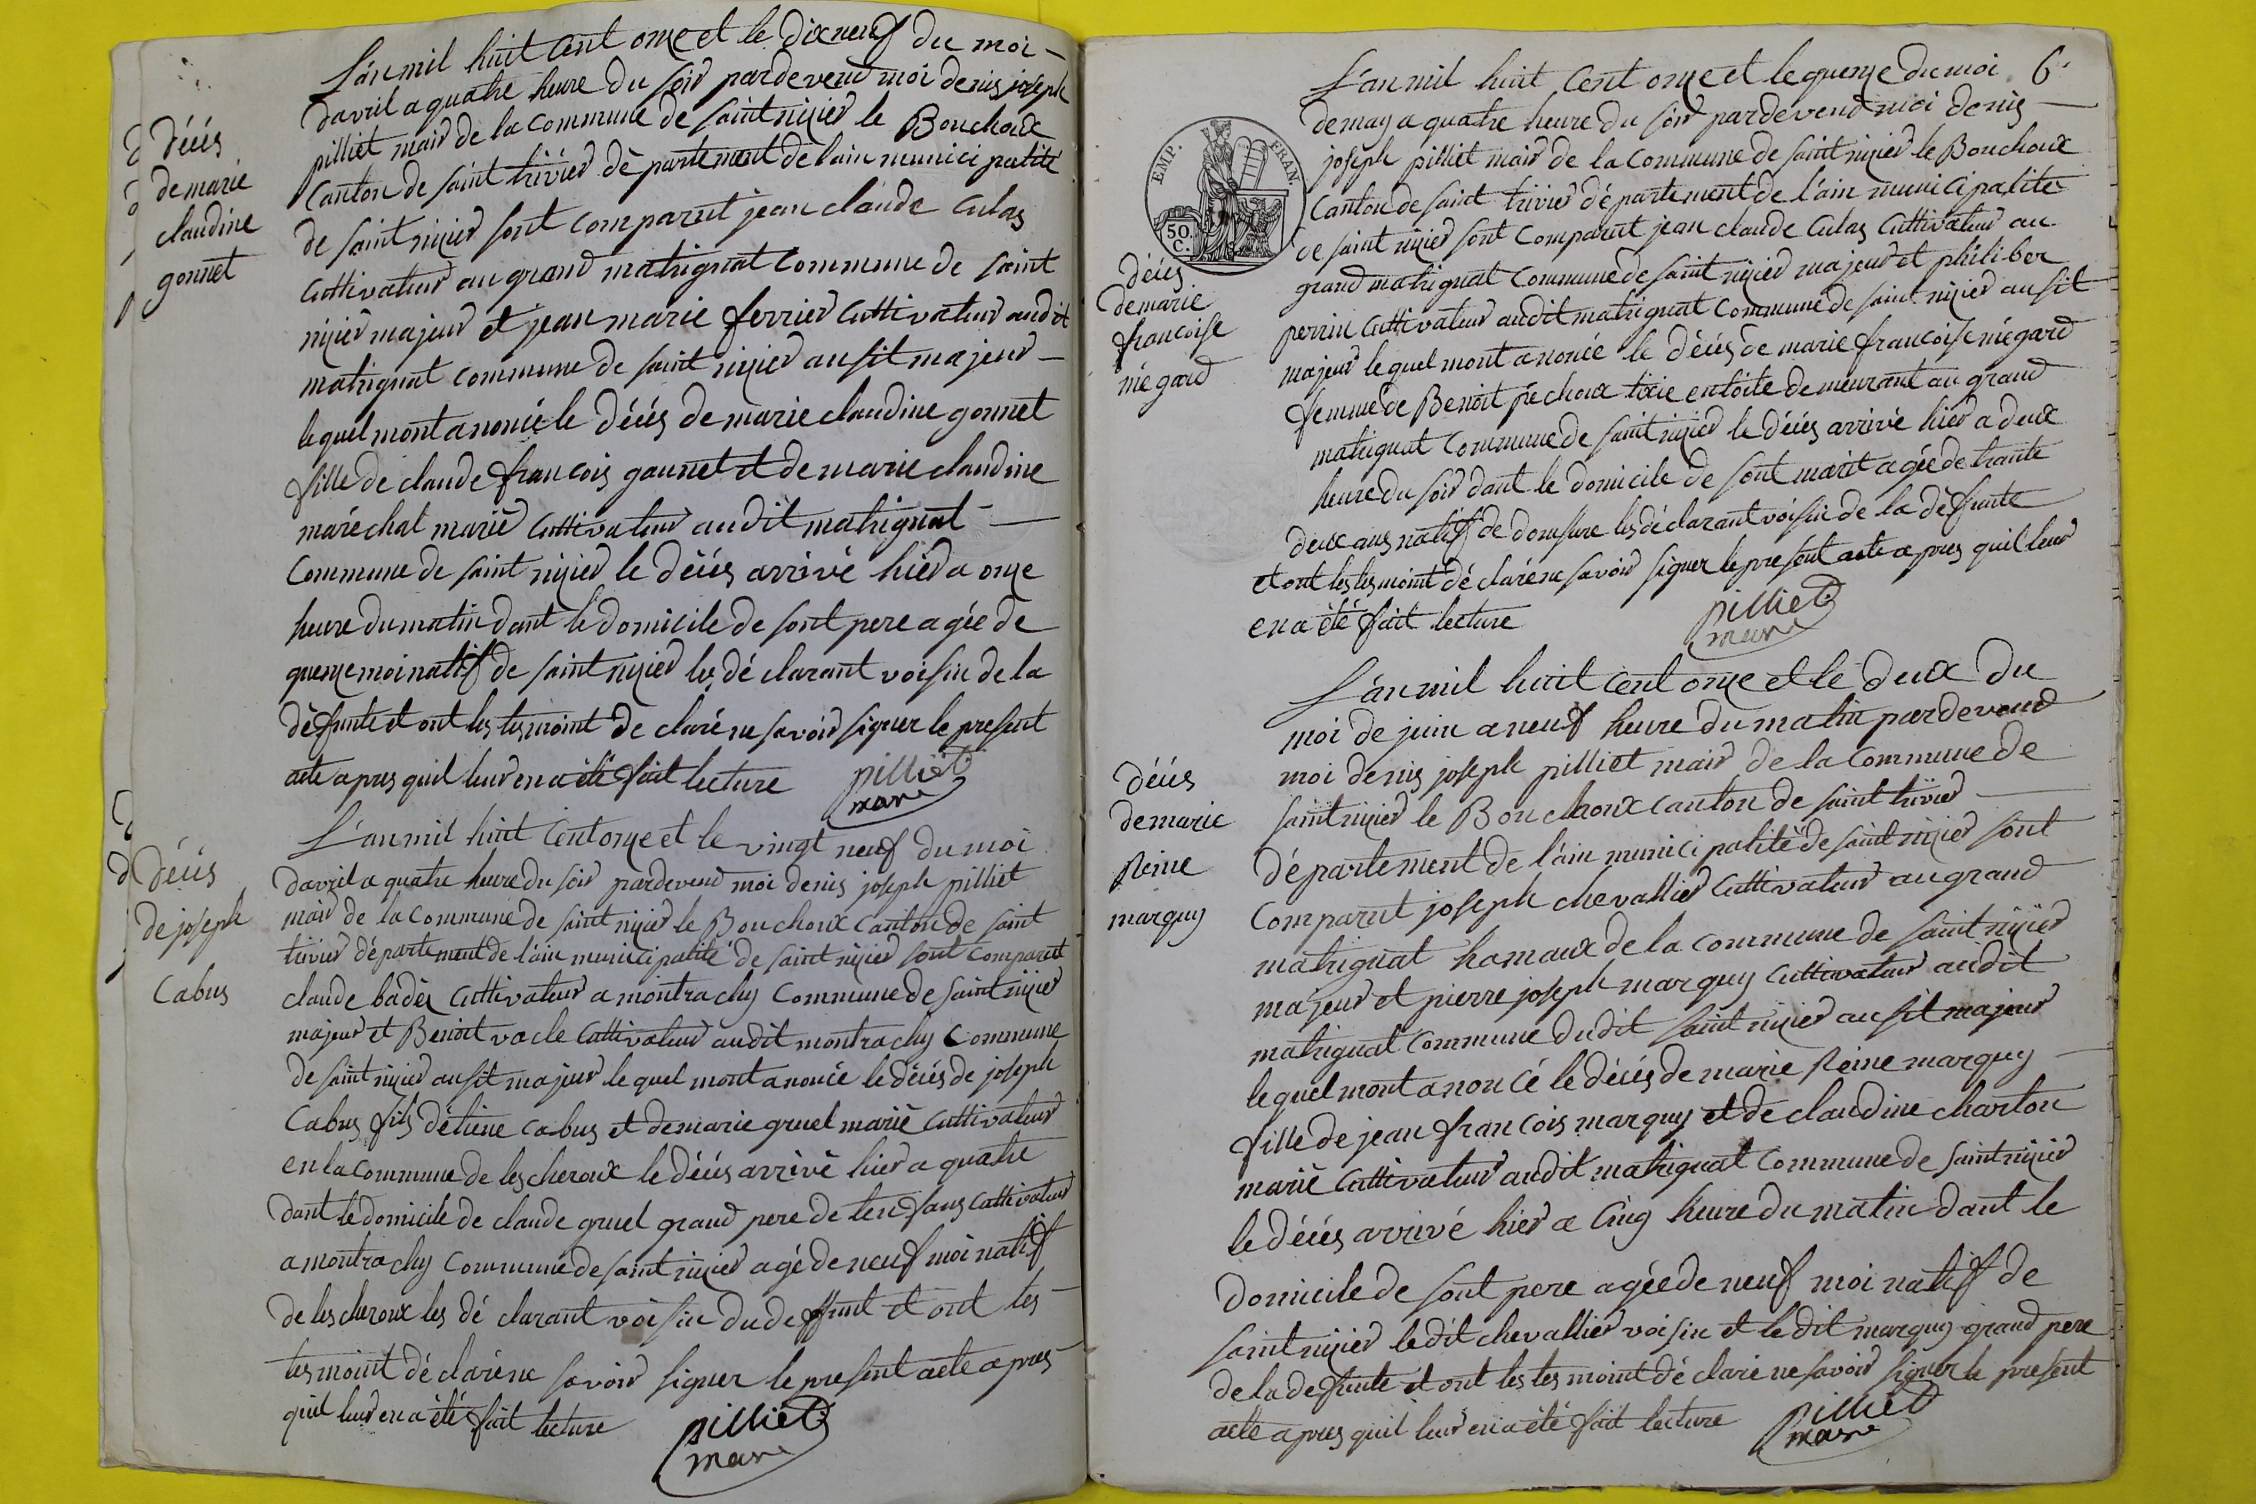 Décés
de marie
claudine
gonnet
L'an mil huit Cent onze et le dixneuf du moi
davril a quatre heure du soir pardevend moi denis joseph
pilliet mair de la Commune de saint nizier le Bouchoux
Canton de saint trivier dèpartement de lain municipalité
de saint nizier sont comparut jean claude Culas
Cuttivateur au grand matrignat commune de saint
nizier majeur et jean marie ferrier Cuttivateur audit
matrignat commune de saint nizier ausit majeur
lequel mont anoncé le Décés de marie claudine gonnet
fille de claude françois gonnet et de marie claudine
maréchal marié Cuttivateur audit matrignat
Commune de saint nizier le décés arrivé hier a onze
heure du matin dant le domicile de sont pere agée de
quenze moi natif de saint nizier les déclarant voisin de la
dèffunte et ont les tesmoint déclaré ne savoir signer le present
acte apres quil leur en a été fait lecture pilliet
mare
Décés
de joseph
Cabus
L'an mil huit Cent onze et le vingt neuf du moi
davril a quatre heure du soir pardevend moi denis joseph pilliet
mair de la Commune de saint nizier le Bouchoux Canton de saint
trivier département de l'ain municipalité de saint nizier sont comparut
claude badez Cuttivateur a montrachy commune de saint nizier
majeur et Benoit vacle Cuttivateur audit montrachy Commune
de saint nizier ausit majeur lequel mont anoncée le décés de joseph
Cabus fils détiene Cabus et de marie gruel marié Cuttivateur
en la commune de lescheroux le décés arrivé hier a quatre
dant le domicile de claude gruel grand pere de lenfans Cuttivateur
a montrachy commune de saint nizier agé de neuf moi natif
de lescheroux les déclarant voisin du deffunt et ont les
tesmoint déclaré ne savoir signer le present acte apres
quil leur en a été fait lecture pilliet
mare
6
EMP. FRAN.
50
C.
Décés
de marie
francoise
mégard
L'an mil huit Cent onze et le quenze du moi
de may a quatre heure du soir pardevend moi denis
joseph pilliet mair de la Commune de saint nizier le Bouchoux
Canton de saint trivier département de l'ain municipalité
de saint nizier sont Comparut jean claude Culas Cuttivateur au
grand matrignat commune de saint nizier majeur et philiber
perrin Cuttivateur audit matrignat commune de saint nizier ausit
majeur lequel mont anoncée le décés de marie francoise mégard
femme de Benoit péchoux tixie en toile demeurant au grand
matrignat commune de saint nizier le décés arrivé hier a deux
heure du soir dant le domicile de sont marit agée de trante
deux ans natif de domsure les déclarant voisin de la dèffunte
et ont les tesmoint déclaré ne savoir signer le present acte apres quil leur
en a été fait lecture pilliet
mare
Décés
de marie
Reine
marquy
L'an mil huit Cent onze et le deux du
moi de juin a neuf heure du matin pardevend
moi denis joseph pilliet mair de la Commune de
saint nizier le Bouchoux canton de saint trivier
département de l'ain municipalité de saint nizier sont
Comparut joseph chevallier Cuttivateur au grand
matrignat hamaux de la commune de saint nizier
majeur et pierre joseph marquy Cuttivateur audit
matrignat commune dudit saint nizier ausit majeur
lequel mont anoncé le décés de marie Reine marquy
fille de jean francois marquy et de claudine charton
marié Cuttivateur audit matrignat commune de saint nizier
le décés arrivé hier a Cinq heure du matin dant le
domicile de sont pere agée de neuf moi natif de
saint nizier ledit chevallier voisin et le dit marquy grand pere
de la deffunte et ont les tesmoint déclaré ne savoir signer le present
acte apres quil leur en a été fait lecture pilliet
mare